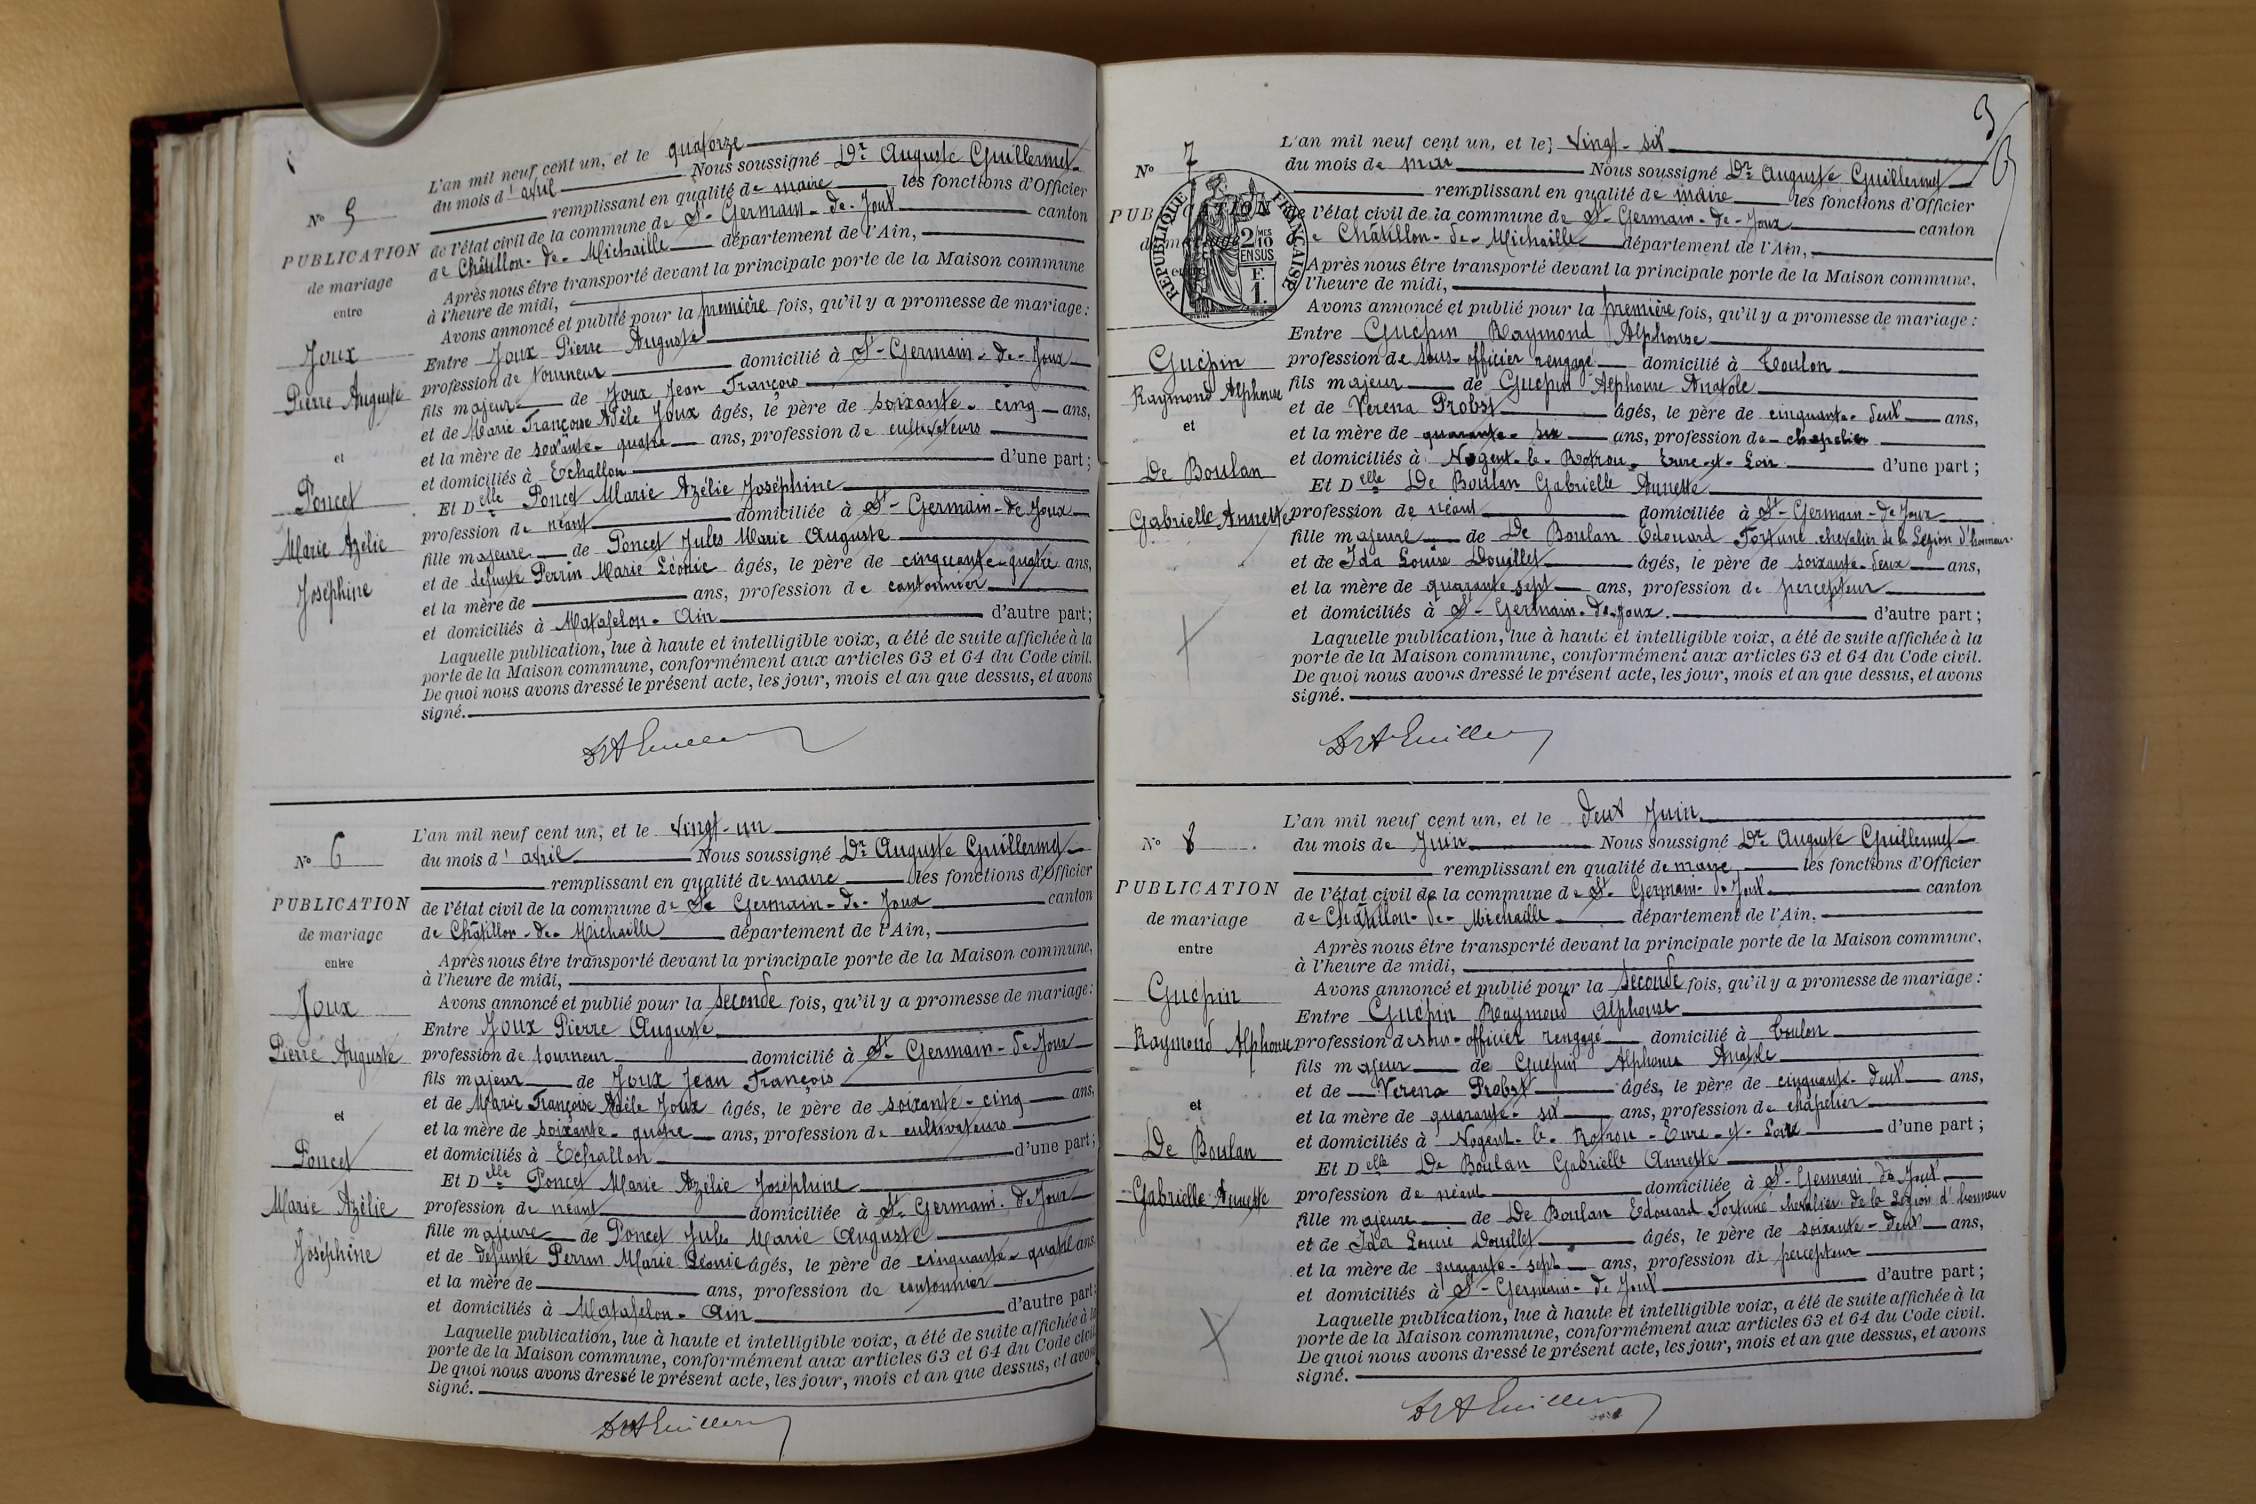 L'an mil neuf cent un, et le quatorze
du mois d'avril Nous soussigné Dr Auguste Guillermet
remplissant en qualité de maire les fonctions d'Officier
No 5
de l'état civil de la commune de St-Germain-de-Joux canton
PUBLICATION
de Châtillon-de-Michaille département de l'Ain,
de mariage
entre
Après nous être transporté devant la principale porte de la Maison commune
à l'heure de midi,
Avons annoncé et publié pour la première fois, qu'il y a promesse de mariage :
Joux
Pierre Auguste
et
Poncet
Marie Azélie
Joséphine
Entre Joux Pierre Auguste
profession de tourneur domicilié à St-Germain-de-Joux
fils majeur de Joux Jean François
et de Marie Françoise Adèle Joux âgés, le père de soixante-cinq ans,
et la mère de soixante-quatre ans, profession de cultivateurs
et domiciliés à Echallon d'une part ;
Et Delle Poncet Marie Azélie Joséphine
profession de néant domiciliée à St-Germain-de-Joux
fille majeure de Poncet Jules Marie Auguste
et de défunte Perrin Marie Léonie âgés, le père de cinquante-quatre ans,
et la mère de ans, profession de cantonnier
et domiciliés à Matafelon-Ain d'autre part ;
Laquelle publication, lue à haute et intelligible voix, a été de suite affichée à la
porte de la Maison commune, conformément aux articles 63 et 64 du Code civil.
De quoi nous avons dressé le présent acte, les jour, mois et an que dessus, et avons
signé.
DrAGuiller
L'an mil neuf cent un, et le vingt-un
No 6
du mois d'avril Nous soussigné Dr Auguste Guillermet
remplissant en qualité de maire les fonctions d'Officier
PUBLICATION
de l'état civil de la commune de St Germain-de-Joux canton
de mariage
de Châtillon-de-Michaille département de l'Ain,
entre
Après nous être transporté devant la principale porte de la Maison commune,
à l'heure de midi,
Avons annoncé et publié pour la seconde fois, qu'il y a promesse de mariage :
Joux
Pierre Auguste
et
Poncet
Marie Azélie
Joséphine
Entre Joux Pierre Auguste
profession de tourneur domicilié à St-Germain-de-Joux
fils majeur de Joux Jean François
et de Marie Françoise Adèle Joux âgés, le père de soixante-cinq ans,
et la mère de soixante-quatre ans, profession de cultivateurs
et domiciliés à Echallon d'une part ;
Et Delle Poncet Marie Azélie Joséphine
profession de néant domiciliée à St-Germain-de-Joux
fille majeure de Poncet Jules Marie Auguste
et de défunte Perrin Marie Léonie âgés, le père de cinquante-quatre ans,
et la mère de ans, profession de cantonnier
et domiciliés à Matafelon-Ain d'autre part ;
Laquelle publication, lue à haute et intelligible voix, a été de suite affichée à la
porte de la Maison commune, conformément aux articles 63 et 64 du Code civil.
De quoi nous avons dressé le présent acte, les jour, mois et an que dessus, et avons
signé.
DrAGuiller
3
L'an mil neuf cent un, et le vingt-six
No 7
du mois de mai Nous soussigné Dr Auguste Guillermet
remplissant en qualité de maire les fonctions d'Officier
PUBLICATION
de l'état civil de la commune de St-Germain-de-Joux canton
de mariage
de Châtillon-de-Michaille département de l'Ain,
entre
RÉPUBLIQUE FRANÇAISE
2 MES
10
EN SUS
F.
1.
Après nous être transporté devant la principale porte de la Maison commune,
à l'heure de midi,
Avons annoncé et publié pour la première fois, qu'il y a promesse de mariage :
Guépin
Raymond Alphonse
et
De Boulan
Gabrielle Annette
Entre Guépin Raymond Alphonse
profession de sous-officier rengagé domicilié à Toulon
fils majeur de Guépin Alphonse Anatole
et de Verena Probst âgés, le père de cinquante-deux ans,
et la mère de quarante-six ans, profession de chapelier
et domiciliés à Nogent-le-Rotrou-Eure-et-Loir d'une part ;
Et Delle De Boulan Gabrielle Annette
profession de néant domiciliée à St-Germain-de-Joux
fille majeure de De Boulan Edouard Fortuné chevalier de la Légion d'honneur
et de Ida Louise Douillet âgés, le père de soixante-deux ans,
et la mère de quarante-sept ans, profession de percepteur
et domiciliés à St-Germain-de-Joux d'autre part ;
Laquelle publication, lue à haute et intelligible voix, a été de suite affichée à la
porte de la Maison commune, conformément aux articles 63 et 64 du Code civil.
De quoi nous avons dressé le présent acte, les jour, mois et an que dessus, et avons
signé.
DrAGuiller
L'an mil neuf cent un, et le deux Juin
No 8
du mois de Juin Nous soussigné Dr Auguste Guillermet
remplissant en qualité de maire les fonctions d'Officier
PUBLICATION
de l'état civil de la commune de St-Germain-de-Joux canton
de mariage
de Châtillon-de-Michaille département de l'Ain,
entre
Après nous être transporté devant la principale porte de la Maison commune,
à l'heure de midi,
Avons annoncé et publié pour la seconde fois, qu'il y a promesse de mariage :
Guépin
Raymond Alphonse
et
De Boulan
Gabrielle Annette
Entre Guépin Raymond Alphonse
profession de sous-officier rengagé domicilié à Toulon
fils majeur de Guépin Alphonse Anatole
et de Verena Probst âgés, le père de cinquante-deux ans,
et la mère de quarante-six ans, profession de chapelier
et domiciliés à Nogent-le-Rotrou-Eure-et-Loir d'une part ;
Et Delle De Boulan Gabrielle Annette
profession de néant domiciliée à St-Germain-de-Joux
fille majeure de De Boulan Edouard Fortuné chevalier de la Légion d'honneur
et de Ida Louise Douillet âgés, le père de soixante-deux ans,
et la mère de quarante-sept ans, profession de percepteur
et domiciliés à St-Germain-de-Joux d'autre part ;
Laquelle publication, lue à haute et intelligible voix, a été de suite affichée à la
porte de la Maison commune, conformément aux articles 63 et 64 du Code civil.
De quoi nous avons dressé le présent acte, les jour, mois et an que dessus, et avons
signé.
DrAGuiller